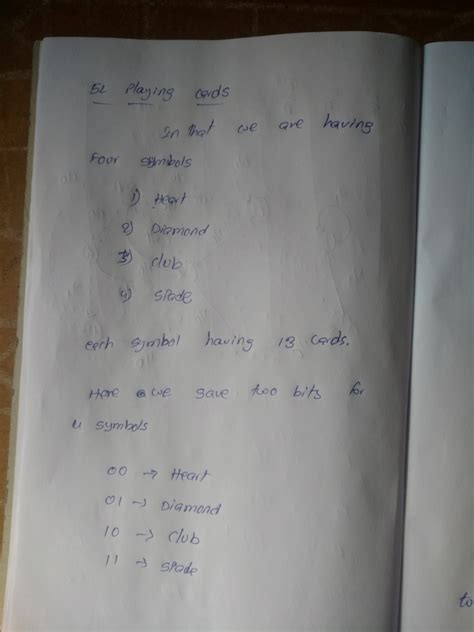 52 Playing Cards
In that we are having
Four symbols
1) Heart
2) Diamond
3) Club
4) Spade
each symbol having 13 cards.
Here we gave two bits for
4 symbols
00 → Heart
01 → Diamond
10 → Club
11 → Spade
to